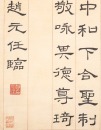 中和下合聖制
敬咏其德尊琦
趙元任臨